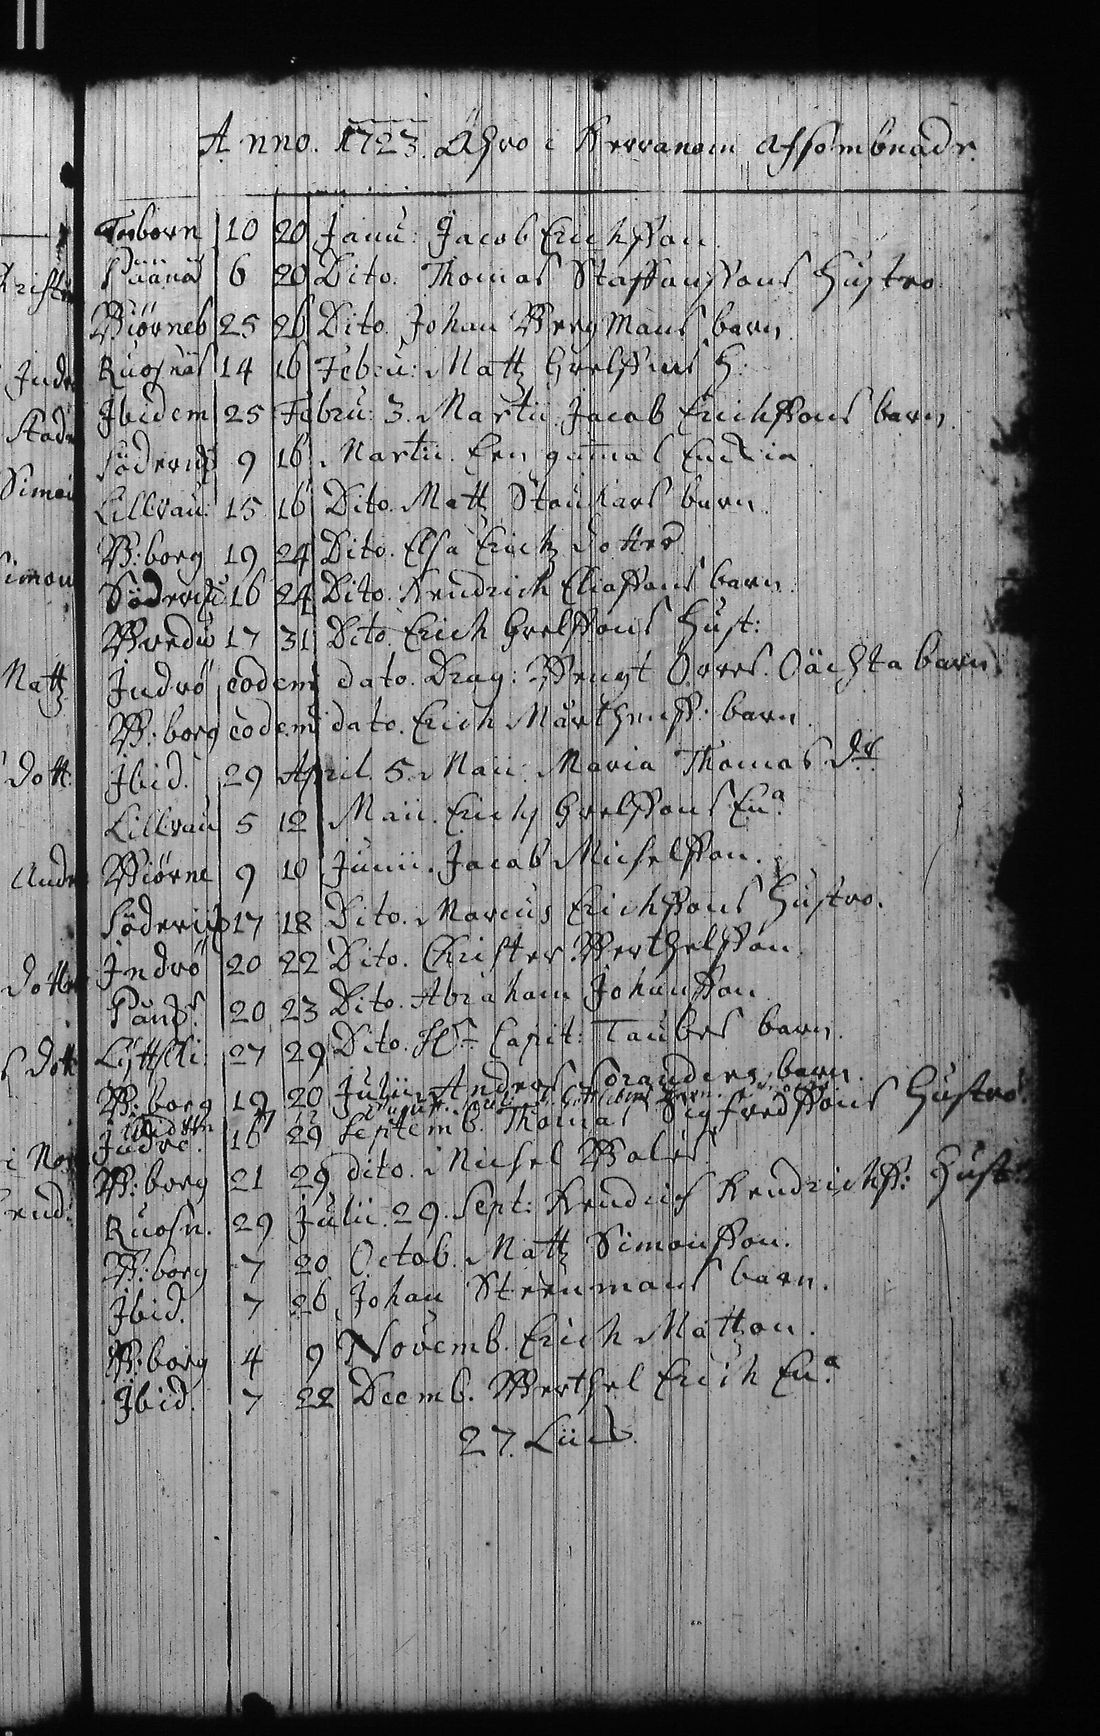 Anno. 1723. Ähro i Herranom afsombnade.
Tosborn 10 20 Janu: Jacob Erichsson
Päänäs 6 20 Dito. Thomas Staffanssons Hustro
Biörneb 25 26 Dito. Johan Bergmans barn
Ruosnäs 14 16 Febru: Matz Grelssons H:
Ibidem 25 Febru: 3. Martii Jacob Erichssons barn
Söderud 9 16 Martii. Een gamal Enckia
Lillrau: 15 16 Dito. Matz Stauhars barn
W:borg 19 24 Dito. Elsa Erichz dotter
Söderud 16 24 Dito. Hendrich Eliassons barn
Bredw 17 31 Dito Erich Grelssons Hust:
Indrö eodem dato. Drag: Bengt Orres. Oächta barn
W:borg eodem dato. Erich Mårthenss: barn
Ibid. 29 April 5. Maii Maria Thomas dr
Lillrau 5 12 Maii. Erich Grelssons Ena
Biörne 9 10 Junii. Jacob Michelsson.
Söderud 17 18 Dito. Marcus Erichssons Hustro.
Indrö 20 22 Dito. Christer Berthelsson
20 23 Dito. Abraham Johansson
27 29 Dito. Hr Capit: Taubes barn
W:borg 19 20 Julii Anders Soranders barn
Ibidem barn.
Indrö. 16 29 Septemb. Thomas Sigfredssons Hustro
W:borg 21 29 dito. Michel Wales
Ruosn. 29 Julii. 29. Sept: Hendrich Hendrichss: Hust:
W:borg 7 20 Octob. Matz Simonsson.
Ibid. 7 26 Johan Steenmans barn.
W:borg 4 9 Novemb. Erich Matzon.
Ibid. 7 22 Decemb. Berthel Erich Ena
27. Liick